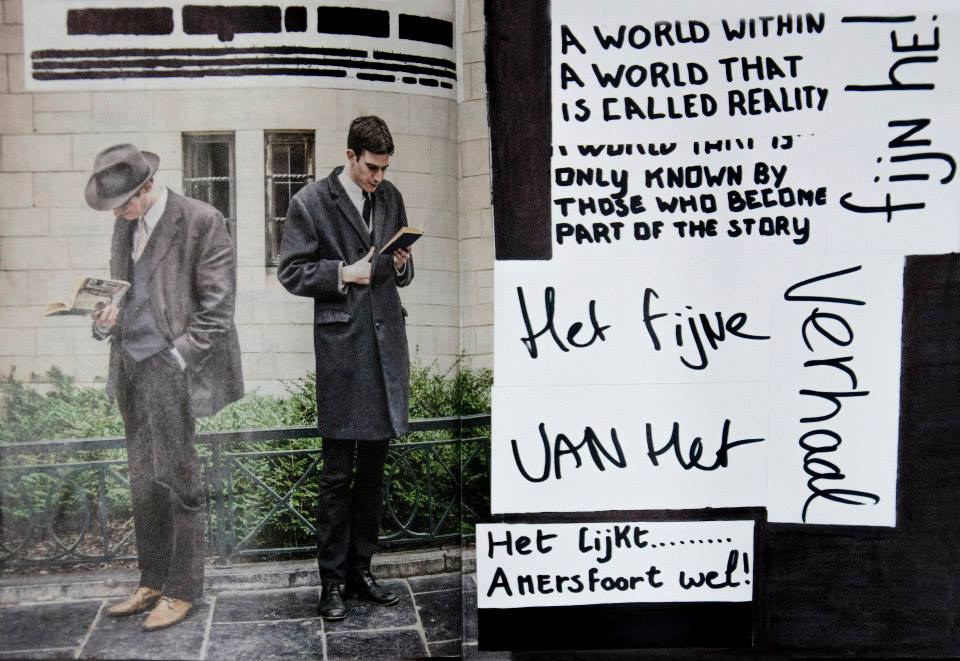 A WORLD WITHIN
A WORLD THAT
IS CALLED REALITY
A WORLD THAT IS
ONLY KNOWN BY
THOSE WHO BECOME
PART OF THE STORY
fijn hE!
Het fijne
VAN Het
verhaal
Het lijkt.........
Amersfoort wel!